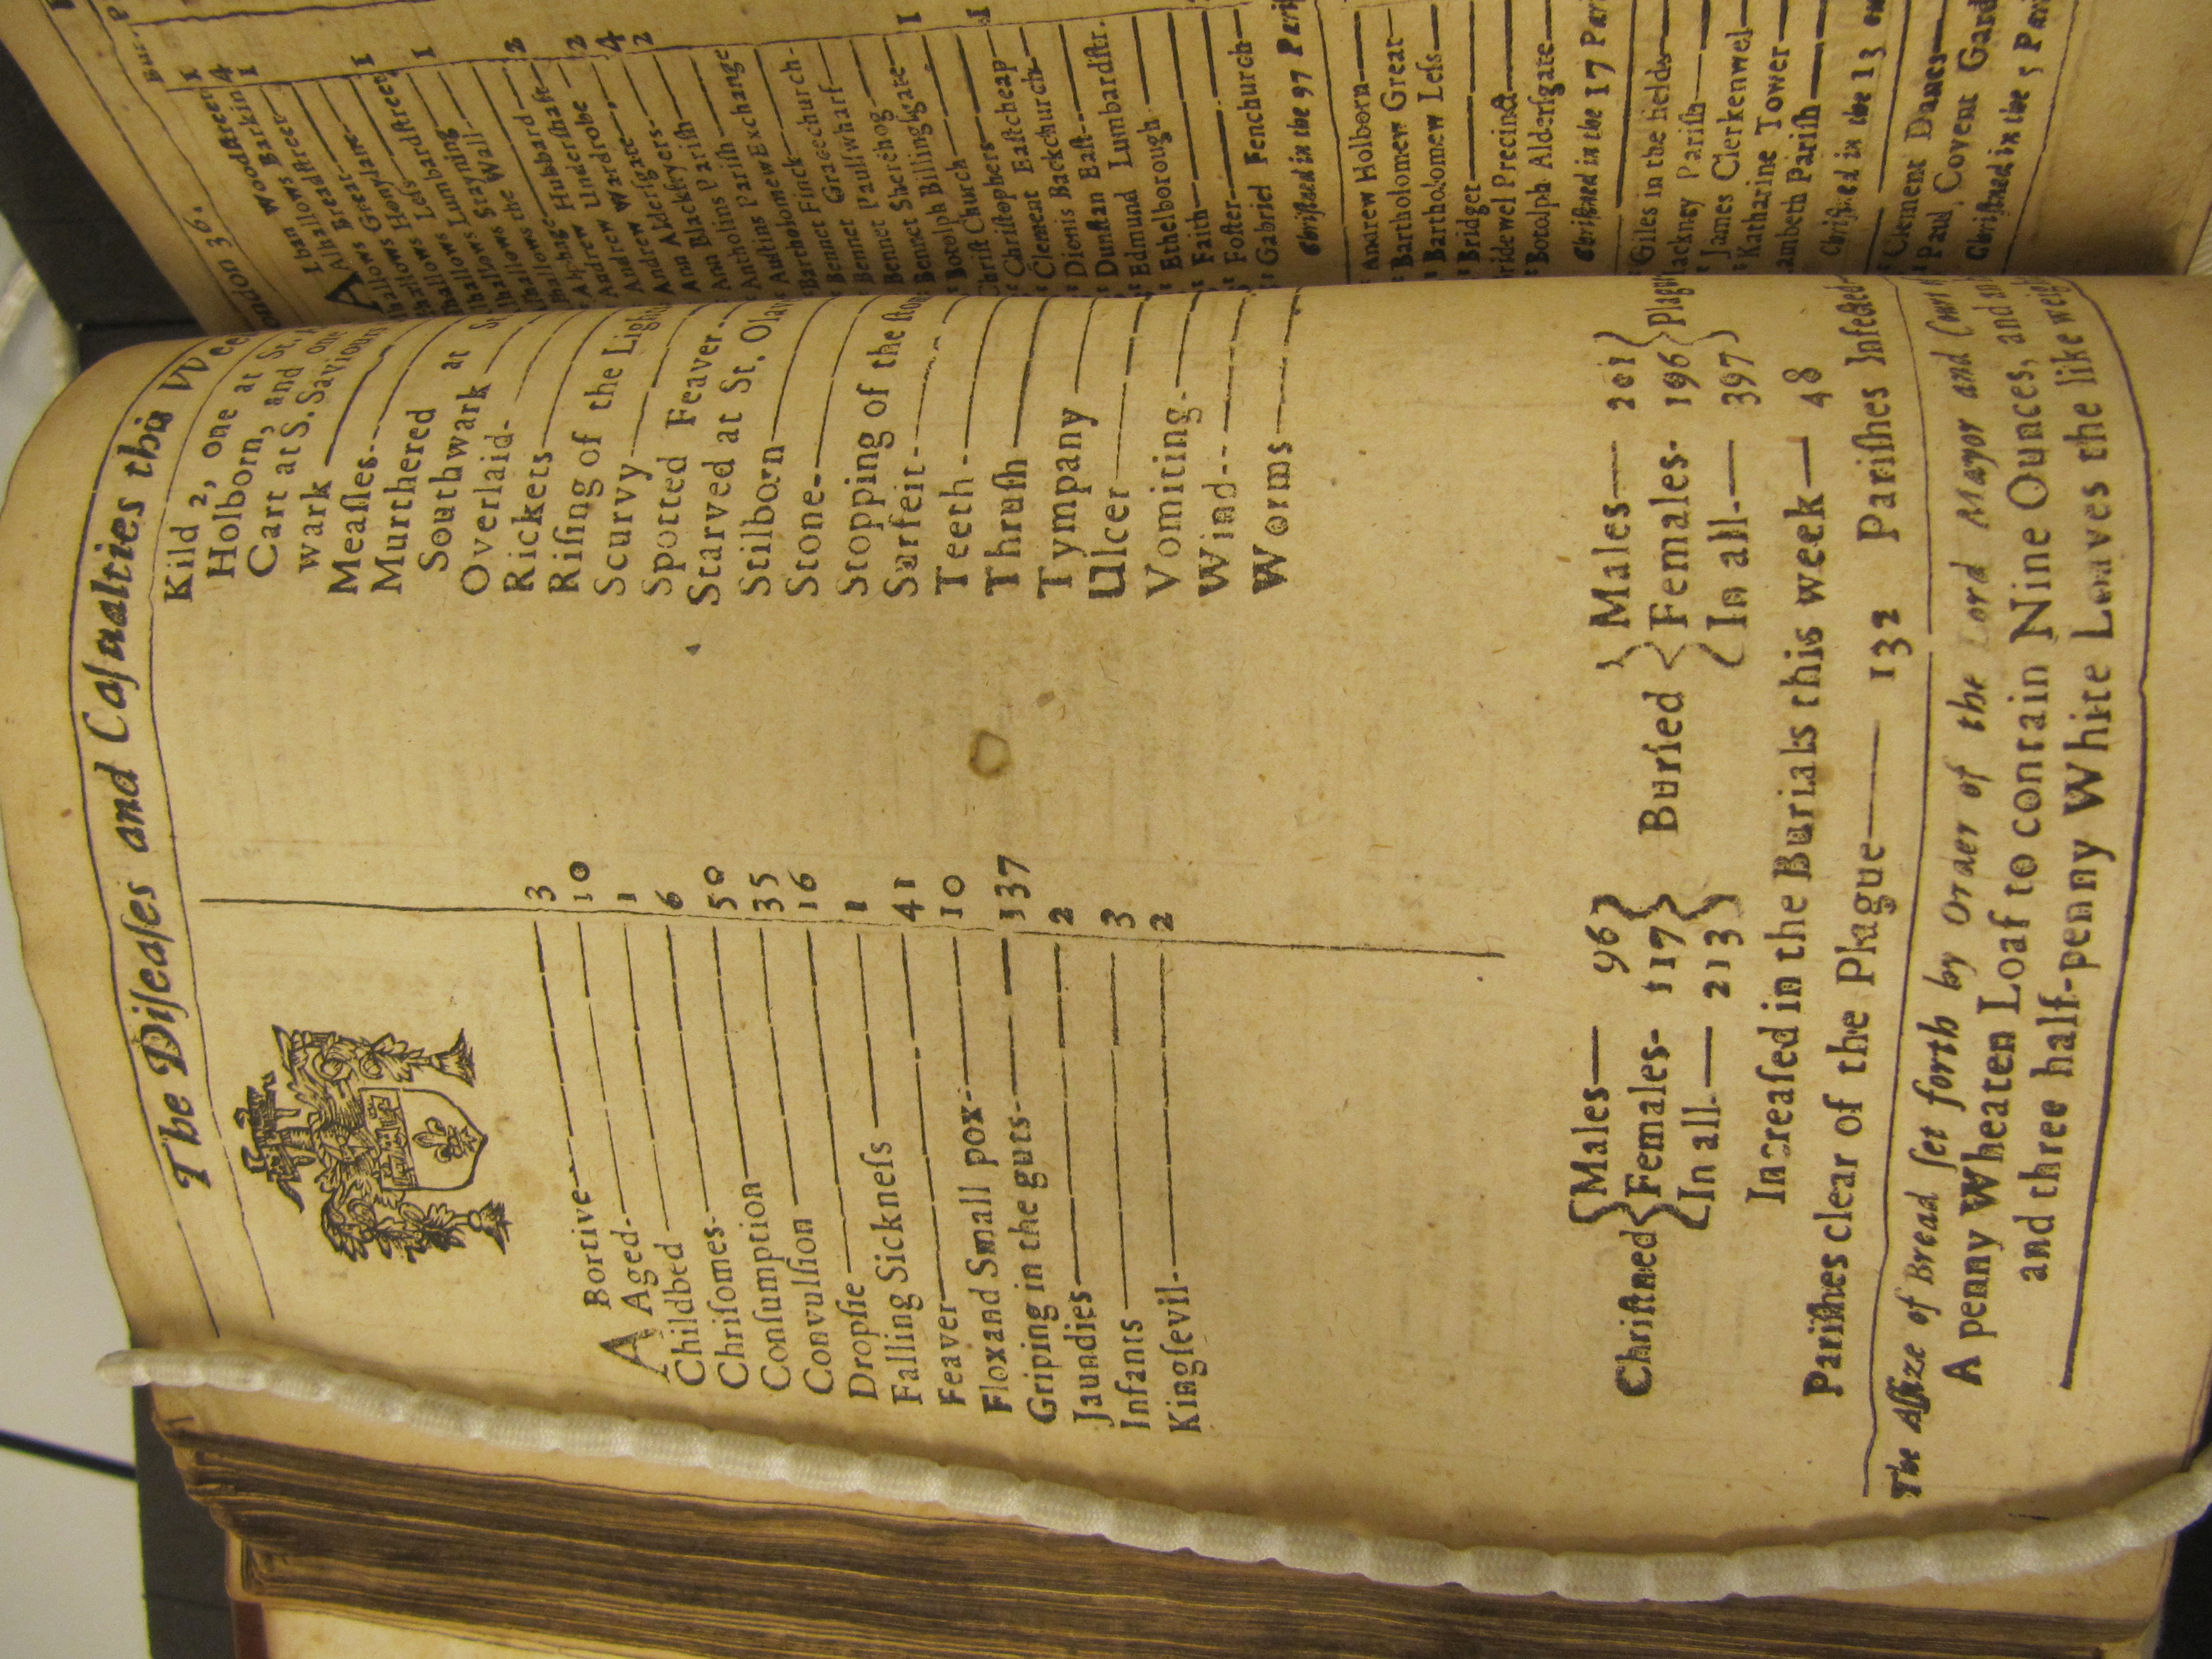 The Diſeaſes and Caſualties this
Abortive 3
Aged 10
Childbed 1
Chriſomes 6
Conſumption 50
Convulſion 35
Dropſie 16
Falling Sickneſs 1
Feaver 41
Flox and Small pox 10
Griping in the guts 137
Jaundies 2
Infants 3
Kingſevil 2
Kild 2, one at
Holborn, and
Cart at S. Saviour
wark
Meaſles
Murthered at
Southwark
Overlaid
Rickets
Riſing of the
Scurvy
Spotted Feaver
Starved at St.
Stilborn
Stone
Stopping of the
Surfeit
Teeth
Thruſh
Tympany
Ulcer
Vomiting
Wind
Worms
Chriſtned { Males 96 Females 117 In all 213 } Buried { Males 201 Females 196 In all 397 }
Increaſed in the Burials this week 48
Pariſhes clear of the Plague 132 Pariſhes Infected
The Aſſize of Bread ſet forth by Order of the Lord Mayor and
A penny Wheaten Loaf to contain Nine Ounces, and
and three half-penny White Loaves the like
Alban Woodſtreet 4
Alhallows Barkin 1
Alhallows Breadſtreet
Alhallows Great
allows Honylane
allows Leſs
hallows Lumbardſtreet
hallows Stayning
hallows the Wall
Alphage
Andrew Hubbard
Andrew Underſhaft
Andrew Wardrobe
Ann Alderſgate
Ann Blackfryers
Antholins Pariſh
Auſtins Pariſh
Bartholomew Exchange
Bennet Finck
Bennet Gracechurch
Bennet Paulſwharf
Bennet Sherehog
Botolph Billingſgate
Chriſt Church
Chriſtophers
Clement Eaſtcheap
Dionis Backchurch
Dunſtan Eaſt
Edmund Lumbardſtr.
Ethelborough
Faith
Foſter
Gabriel Fenchurch
Chriſtned in the 97
Andrew Holborn
Bartholomew Great
Bartholomew Leſs
Bridget
ridewel Precinct
Botolph Alderſgate
Chriſtned in the 17
Giles in the fields
ackney Pariſh
James Clerkenwel
Katharine Tower
ambeth Pariſh
Chriſtned in the 13
Clement Danes
Paul Covent
Chriſtned in the 5